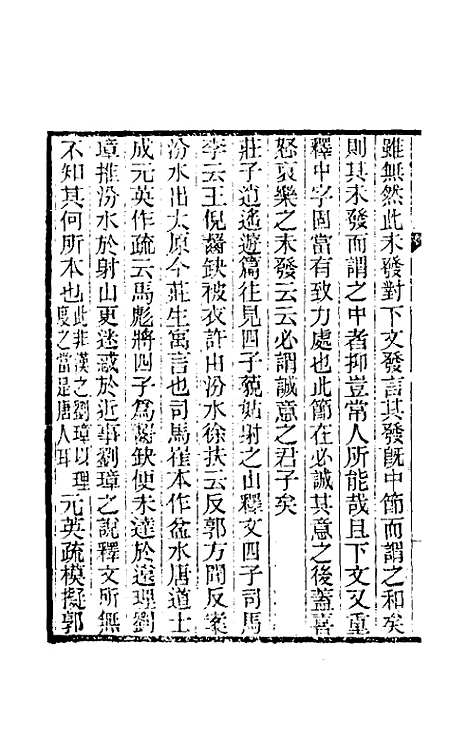 雖無然此未發對下文發言其發旣中節而謂之和矣
則其未發而謂之中者抑豈常人所能哉且下文又重
釋中字固當有致力處也此節在必誠其意之後蓋喜
怒哀樂之未發云云必謂誠意之君子矣
莊子逍遙遊篇往見四子藐姑射之山釋文四子司馬
李云王倪齧缺被衣許由汾水徐扶云反郭方問反案
汾水出太原今莊生寓言也司馬崔本作盆水唐道士
成元英作疏云馬彪將四子爲齧缺便未達於遠理劉
璋推汾水於射山更迷惑於近事劉璋之說釋文所無
不知其何所本也此非漢之劉璋以理度之當是唐人耳元英疏模擬郭